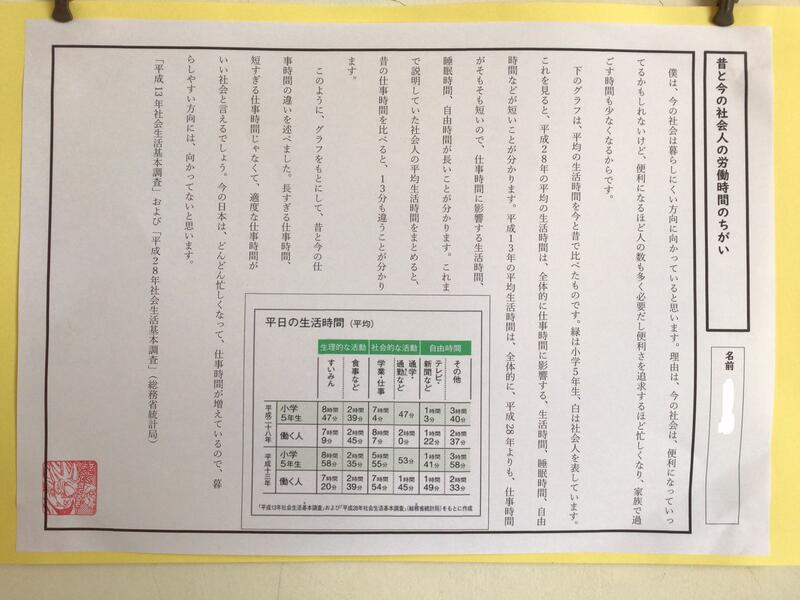 昔と今の社会人の労働時間のちがい
名前
僕は、今の社会は暮らしにくい方向に向かっていると思います。理由は、今の社会は、便利になっていっ
てるかもしれないけど、便利になるほど人の数も多く必要だし便利さを追求するほど忙しくなり、家族で過
ごす時間も少なくなるからです。
下のグラフは、平均の生活時間を今と昔で比べたものです。緑は小学5年生、白は社会人を表しています。
これを見ると、平成28年の平均の生活時間は、全体的に仕事時間に影響する、生活時間、睡眠時間、自由
時間などが短いことが分かります。平成13年の平均生活時間は、全体的に、平成28年よりも、仕事時間
がそもそも短いので、仕事時間に影響する生活時間、
睡眠時間、自由時間が長いことが分かります。これま
で説明していた社会人の平均生活時間をまとめると、
昔の仕事時間を比べると、13分も違うことが分かり
ます。
このように、グラフをもとにして、昔と今の仕
事時間の違いを述べました。長すぎる仕事時間、
短すぎる仕事時間じゃなくて、適度な仕事時間が
いい社会と言えるでしょう。今の日本は、どんどん忙しくなって、仕事時間が増えているので、暮
らしやすい方向には、向かってないと思います。
「平成13年社会生活基本調査」および「平成28年社会生活基本調査」(総務省統計局)
平日の生活時間(平均)
生理的な活動 社会的な活動 自由時間
すいみん 食事など 学業・仕事 通学・通勤など テレビ・新聞など その他
平成二十八年 小学5年生 8時間47分 2時間39分 7時間4分 47分 1時間3分 3時間40分
働く人 7時間9分 2時間45分 8時間7分 2時間0分 1時間22分 2時間37分
平成十三年 小学5年生 8時間58分 2時間35分 5時間55分 53分 1時間41分 3時間58分
働く人 7時間20分 2時間39分 7時間54分 1時間45分 1時間49分 2時間33分
「平成13年社会生活基本調査」および「平成28年社会生活基本調査」(総務省統計局)をもとに作成